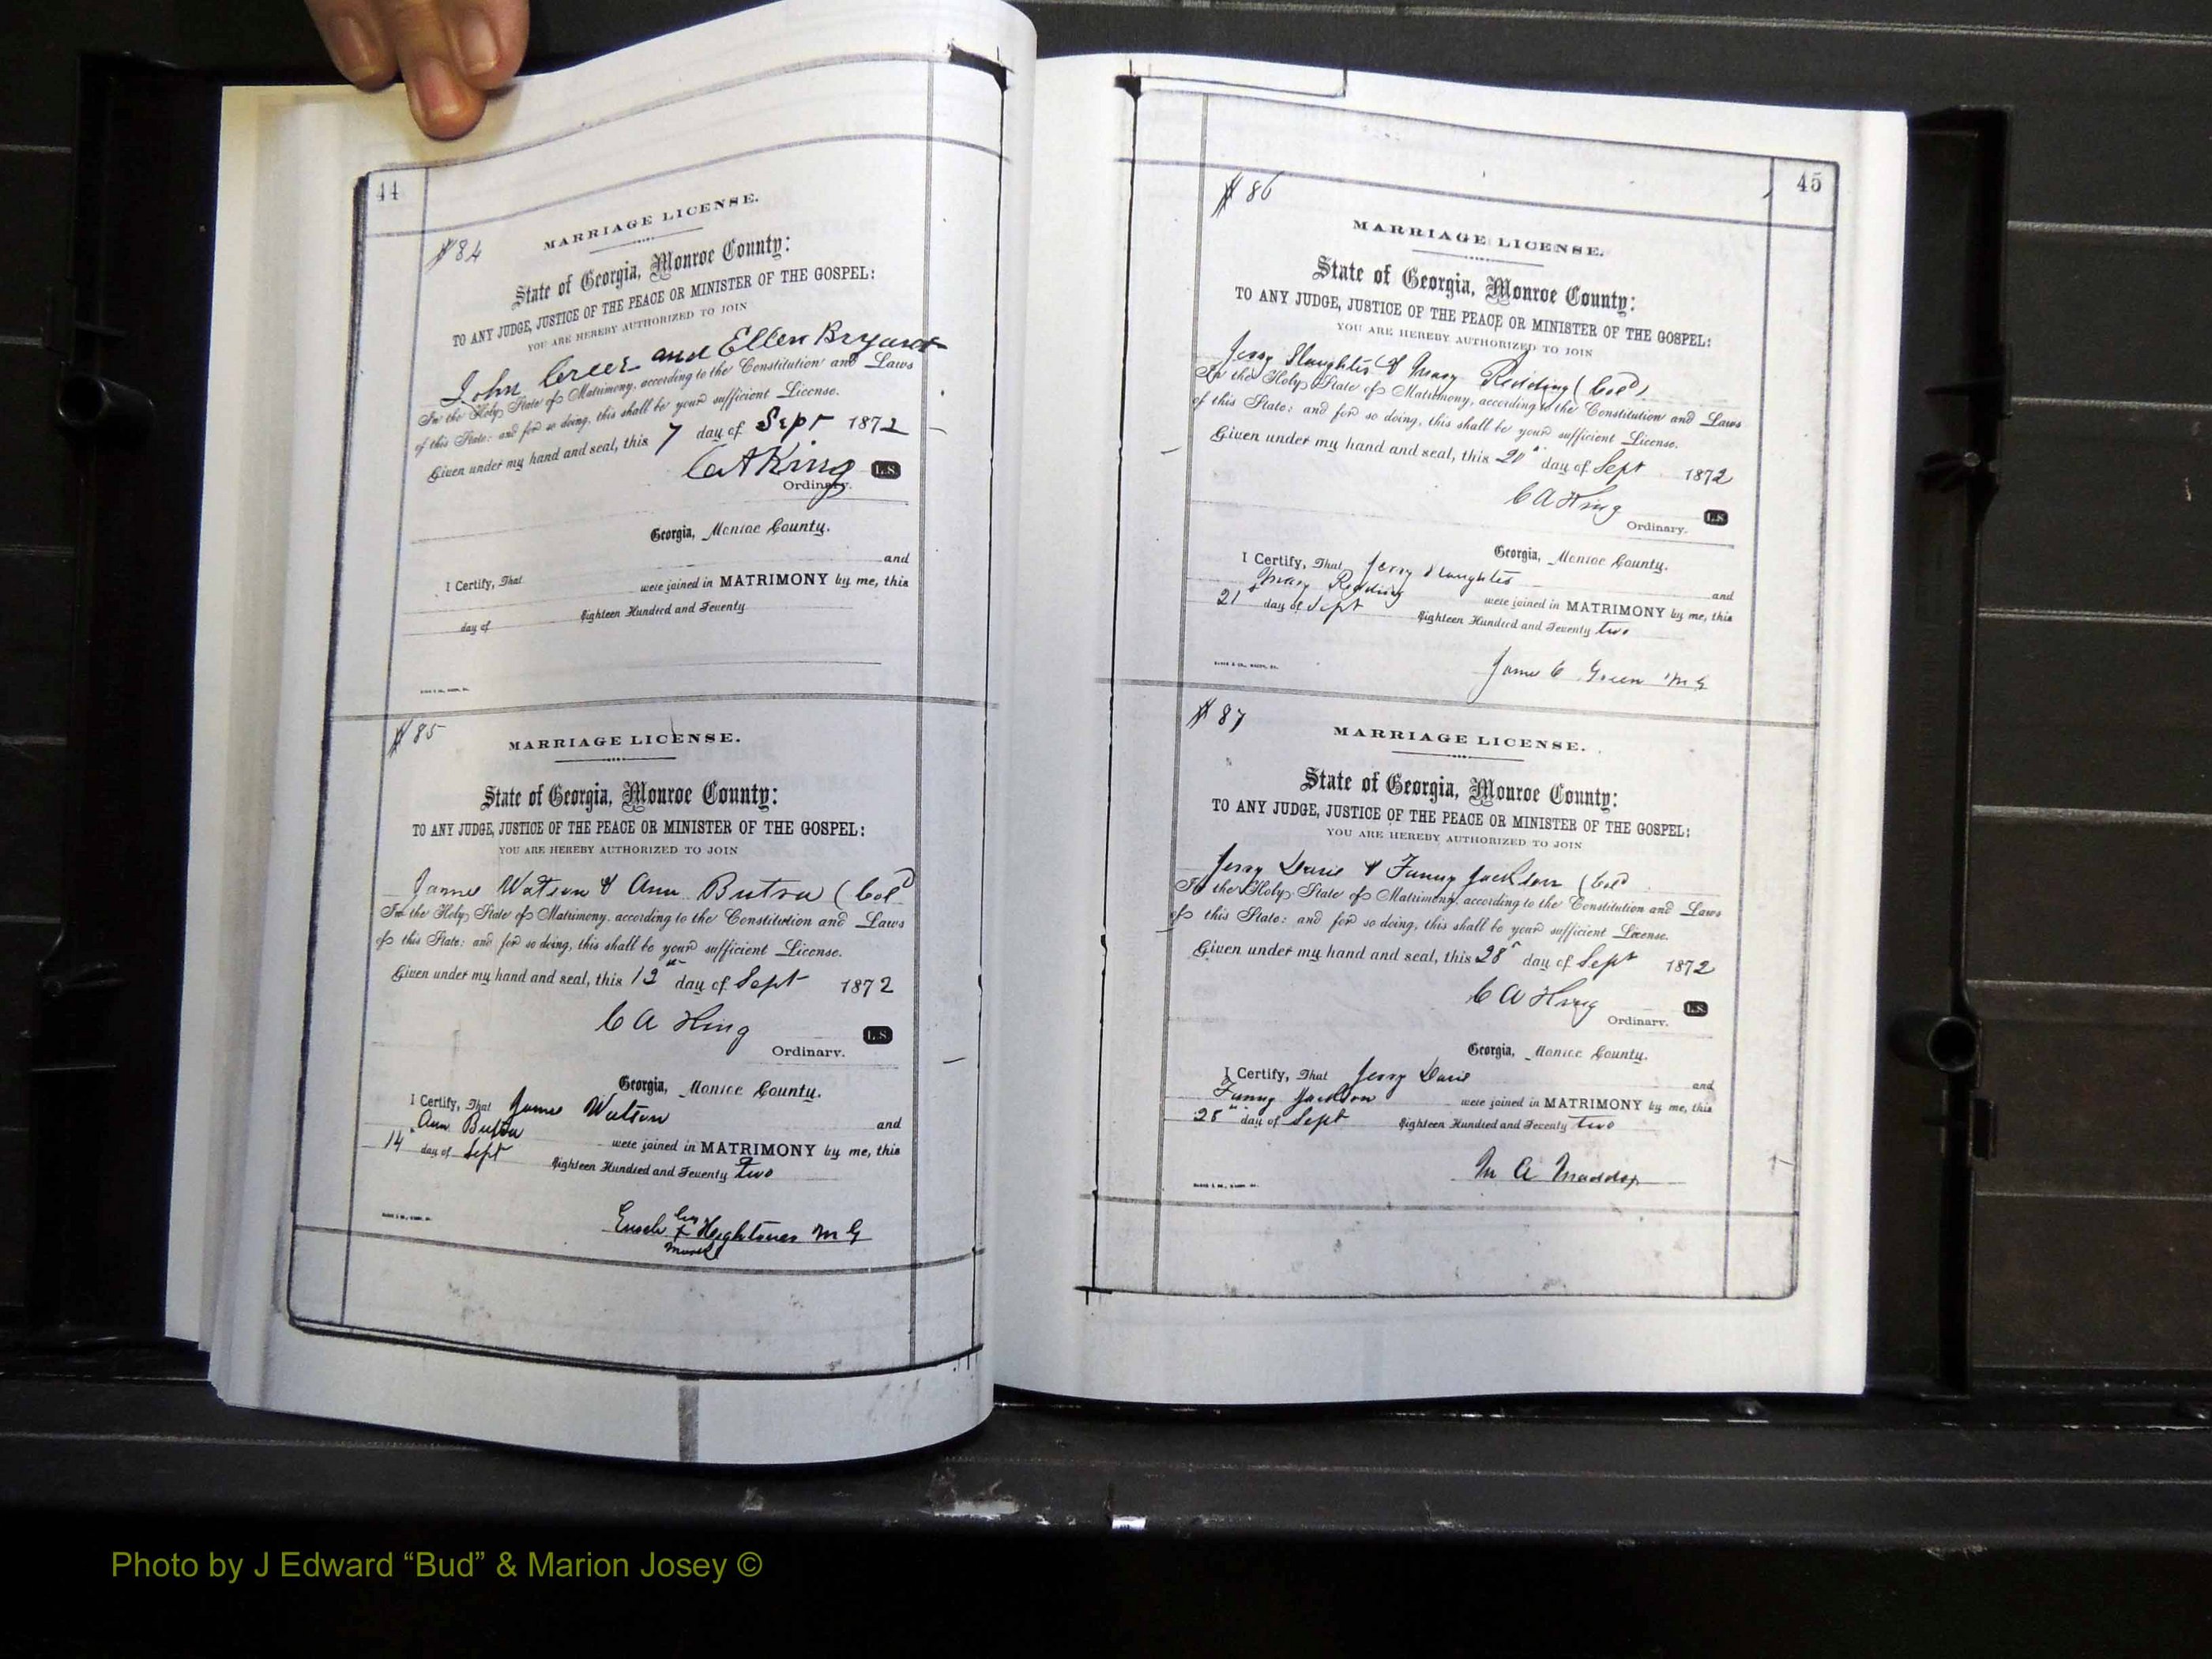 44
# 84
MARRIAGE LICENSE.
State of Georgia, Monroe County:
TO ANY JUDGE, JUSTICE OF THE PEACE OR MINISTER OF THE GOSPEL:
YOU ARE HEREBY AUTHORIZED TO JOIN
John Greer and Ellen Bryant
In the Holy State of Matrimony, according to the Constitution and Laws
of this State: and for so doing, this shall be your sufficient License.
Given under my hand and seal, this 7 day of Sept 1872
C A King L.S.
Ordinary.
Georgia, Monroe County.
I Certify, That and
were joined in MATRIMONY by me, this
day of Eighteen Hundred and Seventy
# 85
MARRIAGE LICENSE.
State of Georgia, Monroe County:
TO ANY JUDGE, JUSTICE OF THE PEACE OR MINISTER OF THE GOSPEL:
YOU ARE HEREBY AUTHORIZED TO JOIN
James Watson & Ann (Cold
In the Holy State of Matrimony, according to the Constitution and Laws
of this State: and for so doing, this shall be your sufficient License.
Given under my hand and seal, this day of Sept 1872
C A King L.S.
Ordinary.
Georgia, Monroe County.
I Certify, That James Watson and
Ann were joined in MATRIMONY by me, this
14 day of Sept Eighteen Hundred and Seventy two
his
x M G
mark
45
# 86
MARRIAGE LICENSE.
State of Georgia, Monroe County:
TO ANY JUDGE, JUSTICE OF THE PEACE OR MINISTER OF THE GOSPEL:
YOU ARE HEREBY AUTHORIZED TO JOIN
Jerry Slaughter & Mary Redding (Cold)
In the Holy State of Matrimony, according to the Constitution and Laws
of this State: and for so doing, this shall be your sufficient License.
Given under my hand and seal, this day of Sept 1872
C A King L.S.
Ordinary.
Georgia, Monroe County.
I Certify, That Jerry Slaughter and
Mary Redding were joined in MATRIMONY by me, this
21 day of Sept Eighteen Hundred and Seventy two
James C Green M G
# 87
MARRIAGE LICENSE.
State of Georgia, Monroe County:
TO ANY JUDGE, JUSTICE OF THE PEACE OR MINISTER OF THE GOSPEL:
YOU ARE HEREBY AUTHORIZED TO JOIN
Jerry Davis & Fanny Jackson (Cold
In the Holy State of Matrimony, according to the Constitution and Laws
of this State: and for so doing, this shall be your sufficient License.
Given under my hand and seal, this 28" day of Sept 1872
C A King L.S.
Ordinary.
Georgia, Monroe County.
I Certify, That Jerry Davis and
Fanny Jackson were joined in MATRIMONY by me, this
28" day of Sept Eighteen Hundred and Seventy two
M A Maddox
Photo by J Edward “Bud” & Marion Josey ©